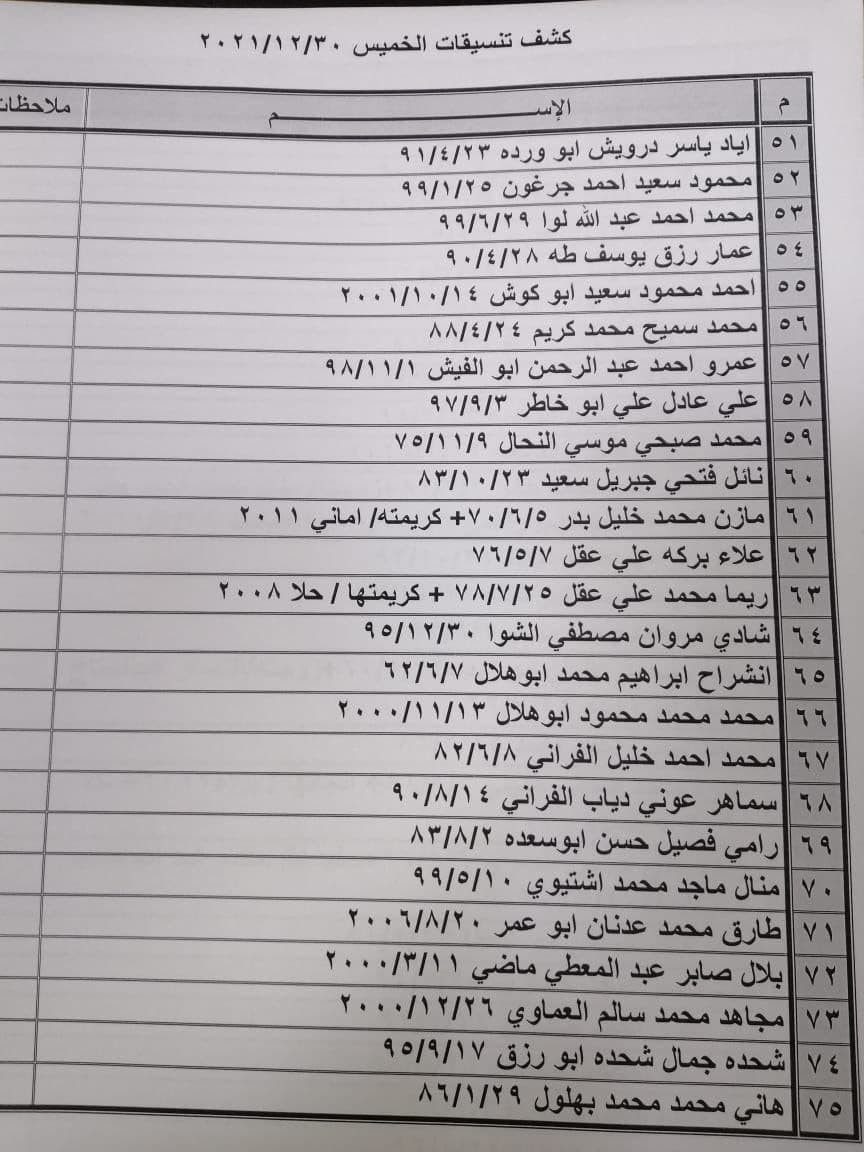 كشف تنسيقات الخميس ٢٠٢١/١٢/٣٠
م الإســـــــم ملاحظات
٥١ اياد ياسر درويش ابو ورده ٩١/٤/٢٣
٥٢ محمود سعيد احمد جرغون ٩٩/١/٢٥
٥٣ محمد احمد عبد الله لوا ٩٩/٦/٢٩
٥٤ عمار رزق يوسف طه ٩٠/٤/٢٨
٥٥ احمد محمود سعيد ابو كوش ٢٠٠١/١٠/١٤
٥٦ محمد سميح محمد كريم ٨٨/٤/٢٤
٥٧ عمرو احمد عبد الرحمن ابو الفيش ٩٨/١١/١
٥٨ علي عادل علي ابو خاطر ٩٧/٩/٣
٥٩ محمد صبحي موسي النحال ٧٥/١١/٩
٦٠ نائل فتحي جبريل سعيد ٨٣/١٠/٢٣
٦١ مازن محمد خليل بدر ٧٠/٦/٥+ كريمته/ اماني ٢٠١١
٦٢ علاء بركه علي عقل ٧٦/٥/٧
٦٣ ريما محمد علي عقل ٧٨/٧/٢٥ + كريمتها / حلا ٢٠٠٨
٦٤ شادي مروان مصطفي الشوا ٩٥/١٢/٣٠
٦٥ انشراح ابراهيم محمد ابوهلال ٦٢/٦/٧
٦٦ محمد محمد محمود ابوهلال ٢٠٠٠/١١/١٣
٦٧ محمد احمد خليل الفراني ٨٢/٦/٨
٦٨ سماهر عوني دياب الفراني ٩٠/٨/١٤
٦٩ رامي فصيل حسن ابوسعده ٨٣/٨/٢
٧٠ منال ماجد محمد اشتيوي ٩٩/٥/١٠
٧١ طارق محمد عدنان ابو عمر ٢٠٠٦/٨/٢٠
٧٢ بلال صابر عبد المعطي ماضي ٢٠٠٠/٣/١١
٧٣ مجاهد محمد سالم العماوي ٢٠٠٠/١٢/٢٦
٧٤ شحده جمال شحده ابو رزق ٩٥/٩/١٧
٧٥ هاني محمد محمد بهلول ٨٦/١/٢٩